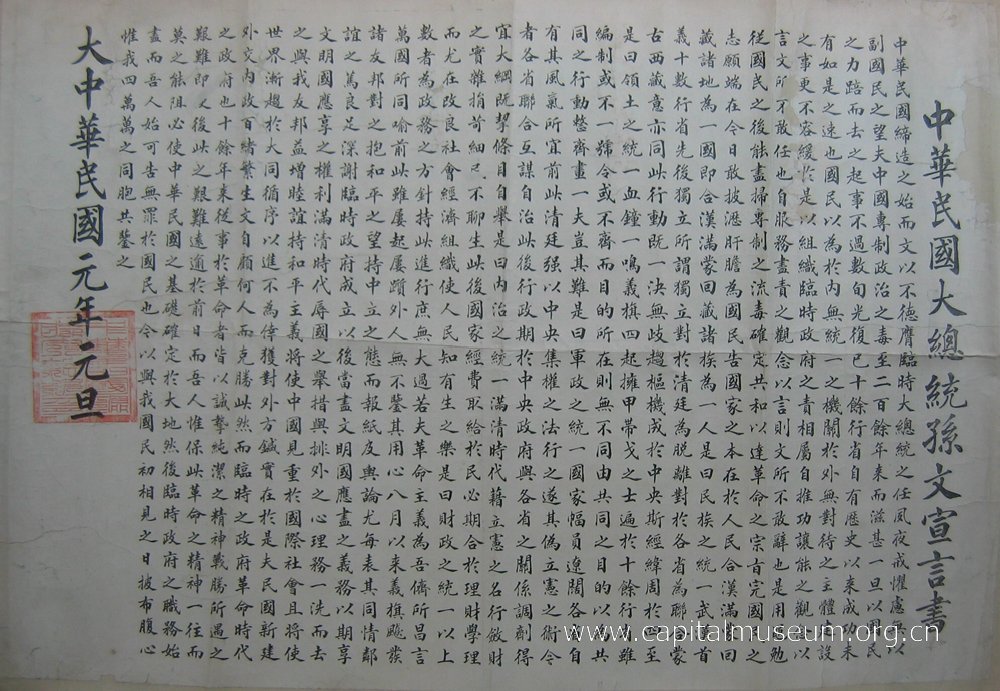 中華民國大總統孫文宣言書
中華民國締造之始而文以不德膺臨時大總統之任夙夜戒懼慮無以
副國民之望夫中國專制政治之毒至二百餘年來而滋甚一旦以國民
之力踣而去之起事不過數旬光復已十餘行省自有歷史以來成功未
有如是之速也國民以為於內無統一之機關於外無對待之主體建設
之事更不容緩於是以組織臨時政府之責相屬自推功讓能之觀念以
言文所不敢任也自服務盡責之觀念以言則文所不敢辭也是用黽勉
從國民之後能盡掃專制之流毒確定共和以達革命之宗旨完國民之
志願端在今日敢披瀝肝膽為國民告國家之本在於人民合漢滿蒙回
藏諸地為一國即合漢滿蒙回藏諸族為一人是曰民族之統一武漢首
義十數行省先後獨立所謂獨立對於清廷為脫離對於各省為聯合蒙
古西藏意亦同此行動既一決無歧趨樞機成於中央斯經緯周於四至
是曰領土之統一血鐘一鳴義旗四起擁甲帶戈之士遍於十餘行省雖
編制或不一號令或不齊而目的所在則無不同由共同之目的以為共
同之行動整齊畫一夫豈其難是曰軍政之統一國家幅員遼闊各省自
有其風氣所宜前此清廷强以中央集權之法行之遂其偽立憲之術今
者各省聯合互謀自治此後行政期於中央政府與各省之關係調劑得
宜大綱既挈條目自舉是曰內治之統一滿清時代藉立憲之名行斂財
之實雜捐苛細民不聊生此後國家經費取給於民必期合於理財學理
而尤在改良社會經濟組織使人民知有生之樂是曰財政之統一以上
數者為政務之方針持此進行庶無大過若夫革命主義為吾儕所昌言
萬國所同喻前此雖屢起屢躓外人無不鑒其用心八月以來義旗飈發
諸友邦對之抱和平之望持中立之態而報紙及輿論尤每表其同情鄰
誼之篤良足深謝臨時政府成立以後當盡文明國應盡之義務以期享
文明國應享之權利滿清時代辱國之舉措與排外之心理務一洗而去
之與我友邦益增睦誼持和平主義將使中國見重於國際社會且將使
世界漸趨於大同循序以進不為倖獲對外方鍼實在於是夫民國新建
外交內政百緒繁生文自顧何人而克勝此然而臨時之政府革命時代
之政府也十餘年來從事於革命者皆以誠摯純潔之精神戰勝所遇之
艱難即後此之艱難遠逾於前日而吾人惟保此革命之精神一往而
莫之能阻必使中華民國之基礎確定於大地然後臨時政府之職務始
盡而吾人始可告無罪於國民也今以與我國民初相見之日披布腹心
惟我四萬萬之同胞共鑒之
大中華民國元年元旦
www.capitalmuseum.org.cn